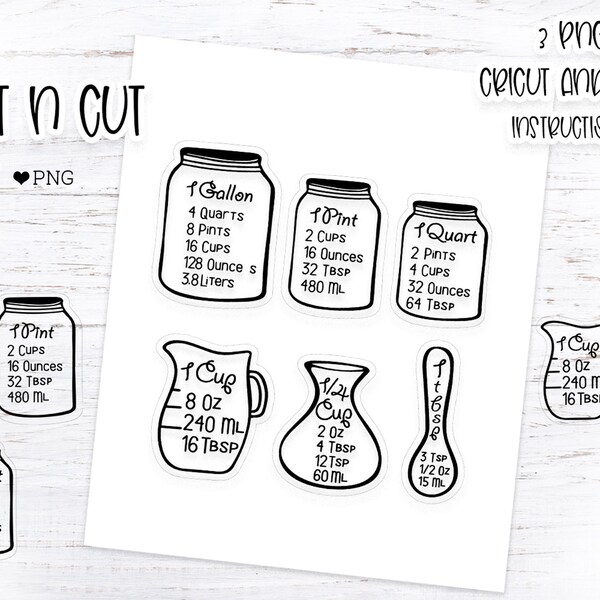 T N CUT
❤PNG
3 PNG
CRICUT AND
INSTRUCTI
1 Gallon
4 Quarts
8 Pints
16 Cups
128 Ounce s
3.8Liters
1 Pint
2 Cups
16 Ounces
32 Tbsp
480 ML
1 Quart
2 Pints
4 Cups
32 Ounces
64 Tbsp
1 Cup
8 Oz
240 ML
16 Tbsp
1/4
Cup
2 Oz
4 Tbsp
12Tsp
60 ML
1 tbsp
3 Tsp
1/2 Oz
15 ML
1 Pint
2 Cups
16 Ounces
32 Tbsp
480 ML
1 Cup
8 Oz
240 M
16 Tb